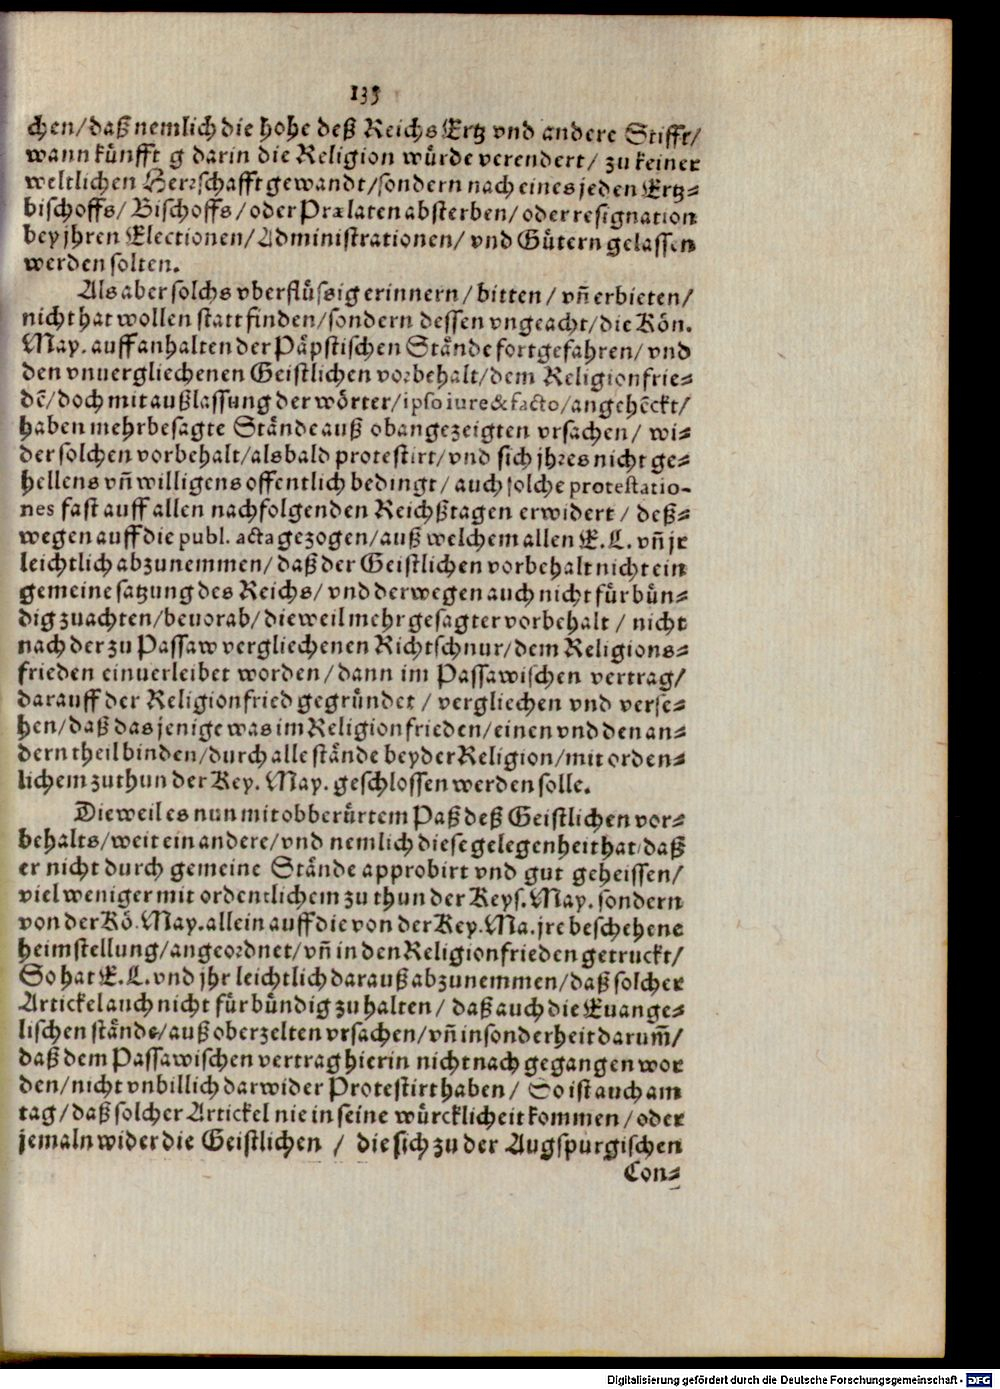 135
chen/daß nemlich die hohe deß Reichs Ertz vnd andere Stifft/
wann künfft g darin die Religion würde verendert/ zu keiner
weltlichen Herrschafft gewandt/sondern nach eines jeden Ertz=
bischoffs/ Bischoffs/ oder Prælaten absterben/ oder resignation
bey jhren Electionen/ Administrationen/ vnd Gütern gelassen
werden solten.
Als aber solchs vberflüssig erinnern/ bitten/ vñ erbieten/
nicht hat wollen statt finden/sondern dessen vngeacht/die Kön.
May. auff anhalten der Päpstischen Stände fortgefahren/ vnd
den vnuergliechenen Geistlichen vorbehalt/dem Religionfrie=
dẽ/doch mit außlassung der wörter/ipso iure & facto/angehẽckt/
haben mehrbesagte Stände auß obangezeigten vrsachen/ wi=
der solchen vorbehalt/als bald protestirt/vnd sich jhres nicht ge=
hellens vñ willigens offentlich bedingt/ auch solche protestatio-
nes fast auff allen nachfolgenden Reichßtagen erwidert/ deß=
wegen auff die publ. acta gezogen/auß welchem allen E. L. vñ jr
leichtlich abzunemmen/ daß der Geistlichen vorbehalt nicht ein
gemeine satzung des Reichs/ vnd derwegen auch nicht für bün=
dig zuachten/beuorab/ dieweil mehrgesagter vorbehalt / nicht
nach der zu Passaw vergliechenen Richtschnur/dem Religions=
frieden einuerleibet worden/dann im Passawischen vertrag/
darauff der Religionfried gegründet / vergliechen vnd verse=
hen/daß das jenige was im Religionfrieden/einen vnd den an=
dern theil binden/durch alle stände beyder Religion/mit orden=
lichem zuthun der Key. May. geschlossen werden solle.
Dieweil es nun mit obberürtem Paß deß Geistlichen vor=
behalts/weit ein andere/vnd nemlich diese gelegenheit hat/daß
er nicht durch gemeine Stände approbirt vnd gut geheissen/
viel weniger mit ordentlichem zuthun der Keys. May. sondern
von der Kö. May. allein auff die von der Key. Ma. jre beschehene
heimstellung/angeordnet/vñ in den Religionfrieden getruckt/
So hat E. L. vnd jhr leichtlich darauß abzunemmen/daß solcher
Artickel auch nicht für bündig zu halten/ daß auch die Euange=
lischen stände/auß oberzelten vrsachen/vñ insonderheit darum̃/
daß dem Passawischen vertrag hierin nicht nach gegangen wor
den/nicht vnbillich darwider Protestirt haben/ So ist auch am
tag/daß solcher Artickel nie in seine würcklicheit kommen/oder
jemaln wider die Geistlichen / die sich zu der Augspurgischen
Con=
Digitalisierung gefördert durch die Deutsche Forschungsgemeinschaft - DFG